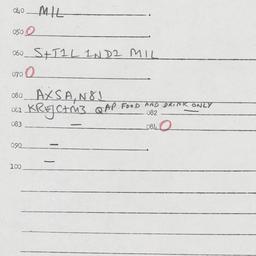 040 MIL
050 O
060 S+T1L 1ND2 MIL
070 O
080 AXSA, N81
081 KREJC+M3 QAP FOOD AND DRINK ONLY
082 —
083 — 084 O
090 —
100 —